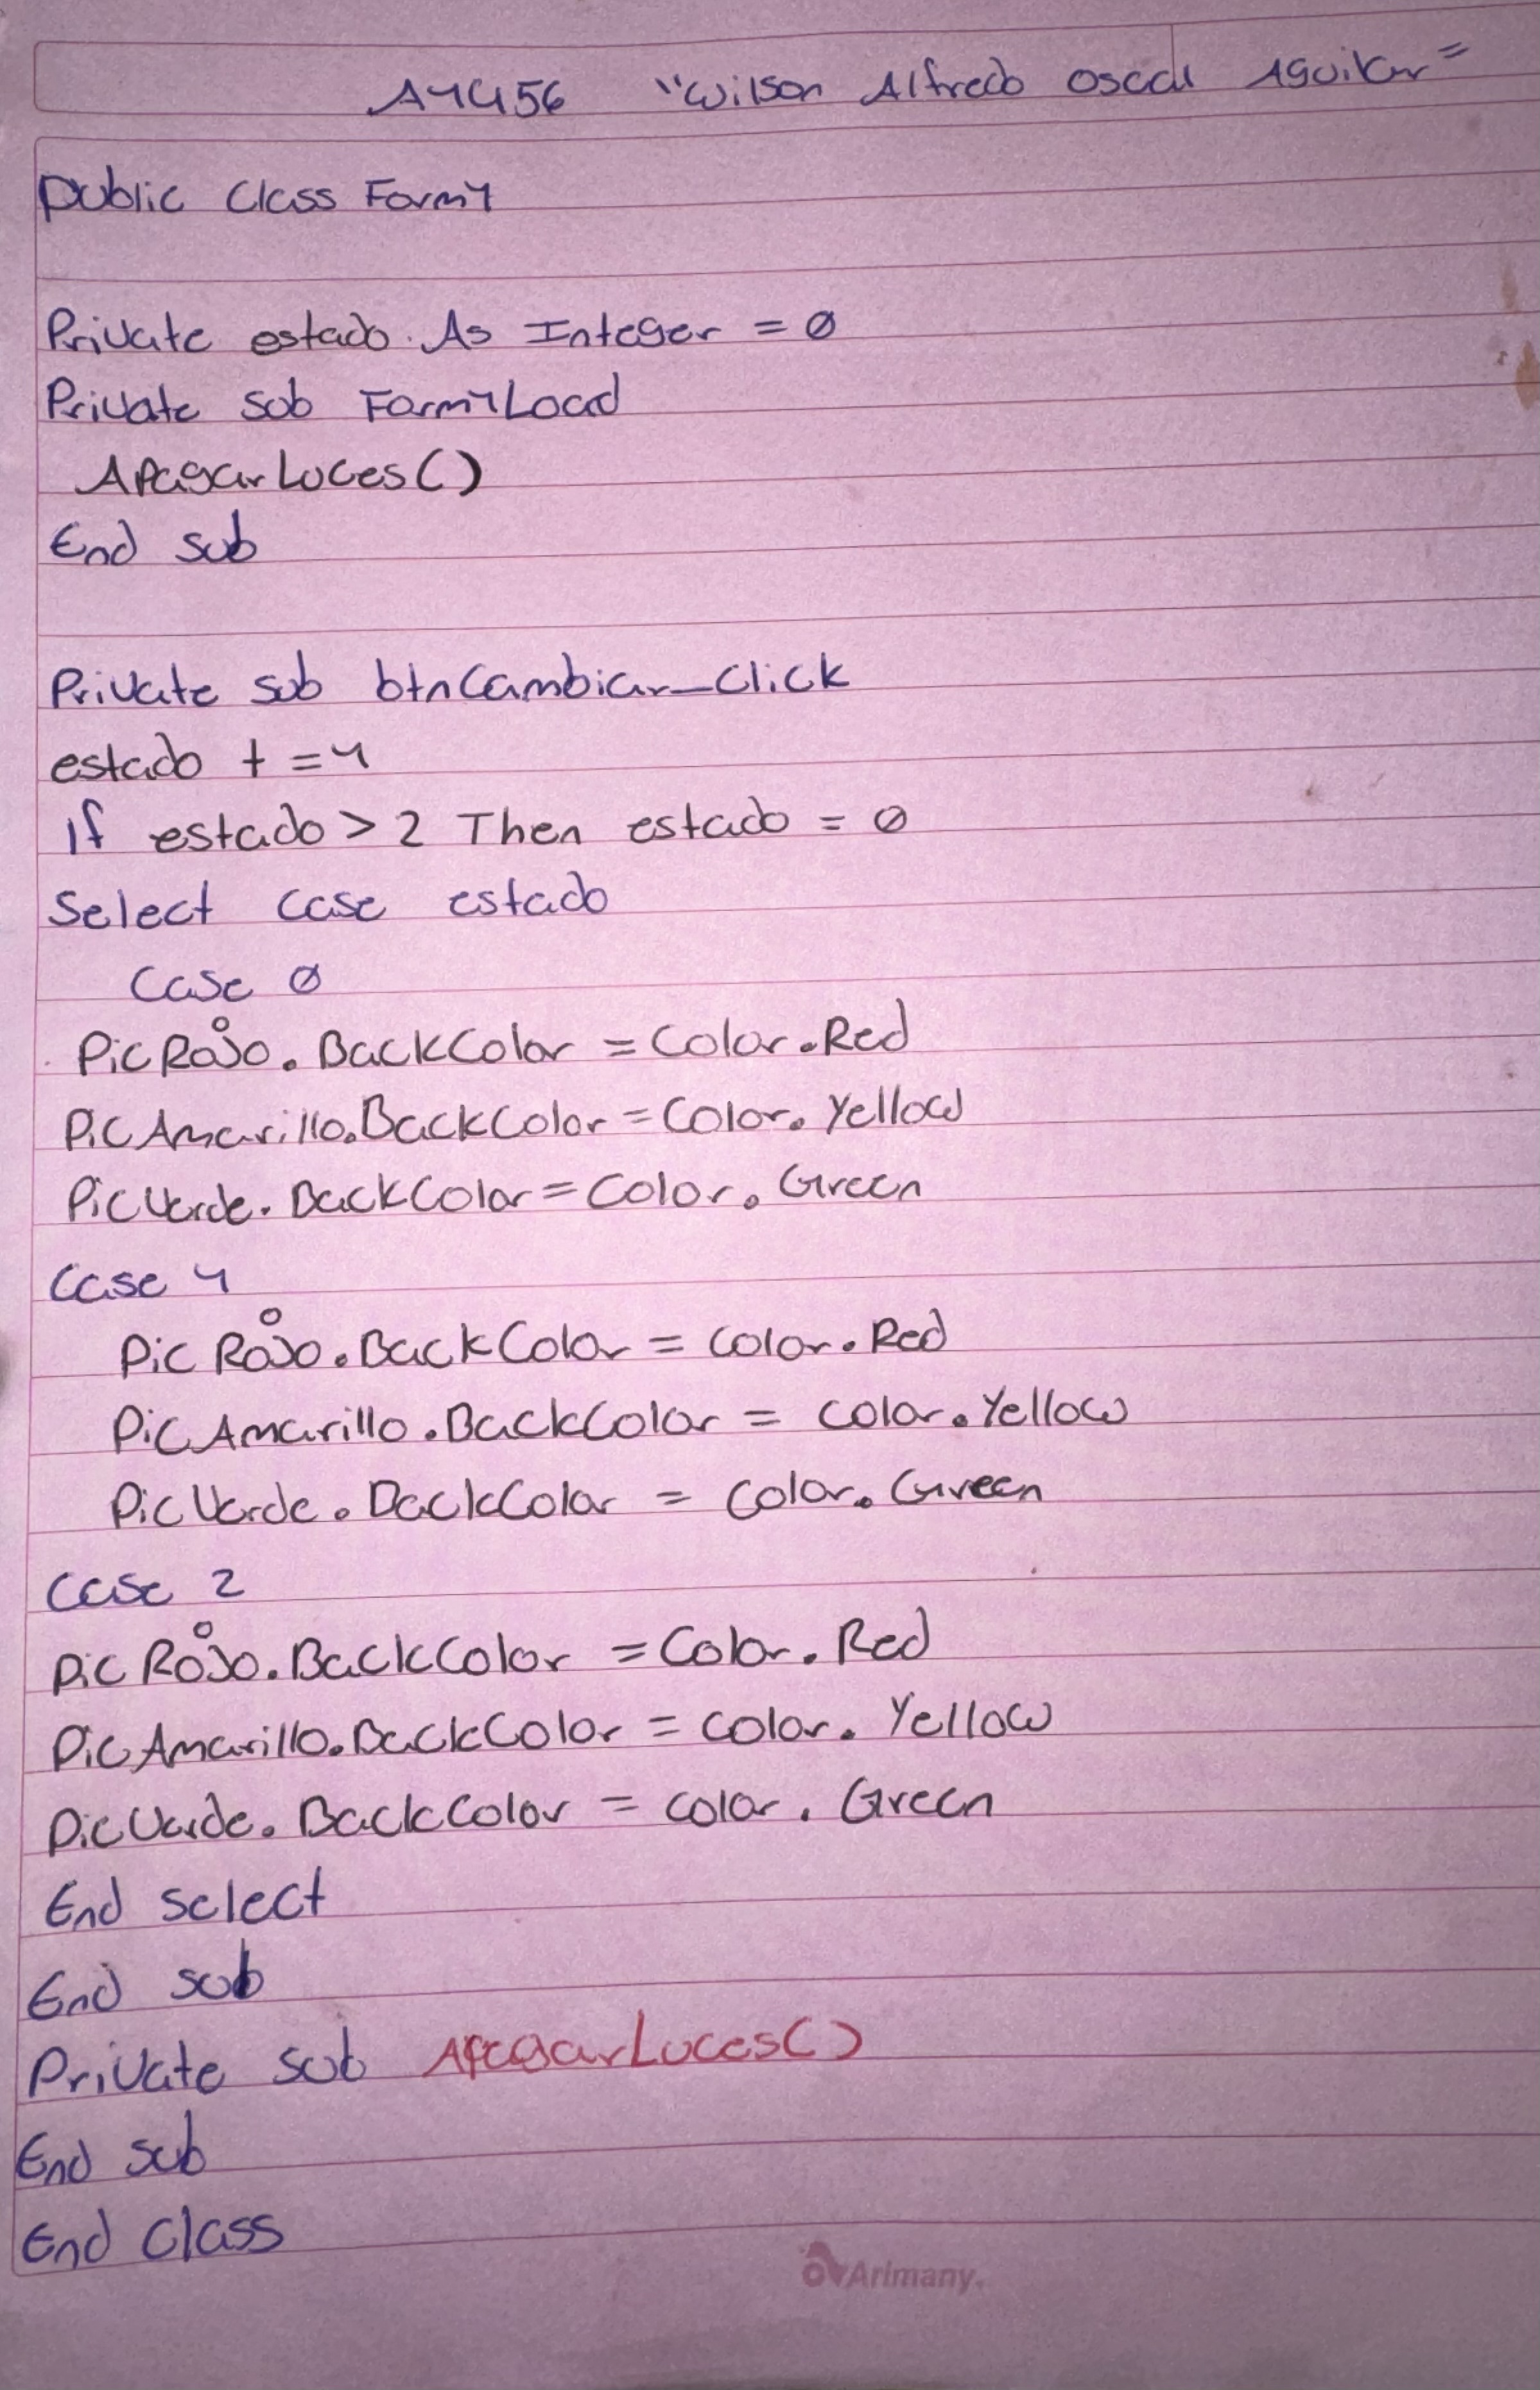 "Wilson Alfredo Oscal Aguilar"
Public Class Form1
Private estado As Integer = 0
Private sub Form1Load
ApagarLuces()
End sub
Private sub btnCambiar_Click
estado + = 1
If estado > 2 Then estado = 0
Select case estado
Case 0
PicRojo.BackColor = Color.Red
PicAmarillo.BackColor = Color.Yellow
PicVerde.BackColor = Color.Green
Case 1
Pic Rojo.BackColor = color.Red
PicAmarillo.BackColor = color.Yellow
PicVerde.BackColor = color.Green
Case 2
Pic Rojo.BackColor = Color.Red
PicAmarillo.BackColor = color.Yellow
PicVerde.BackColor = color.Green
End select
End sub
Private sub ApagarLuces()
End sub
End class
Arimany.